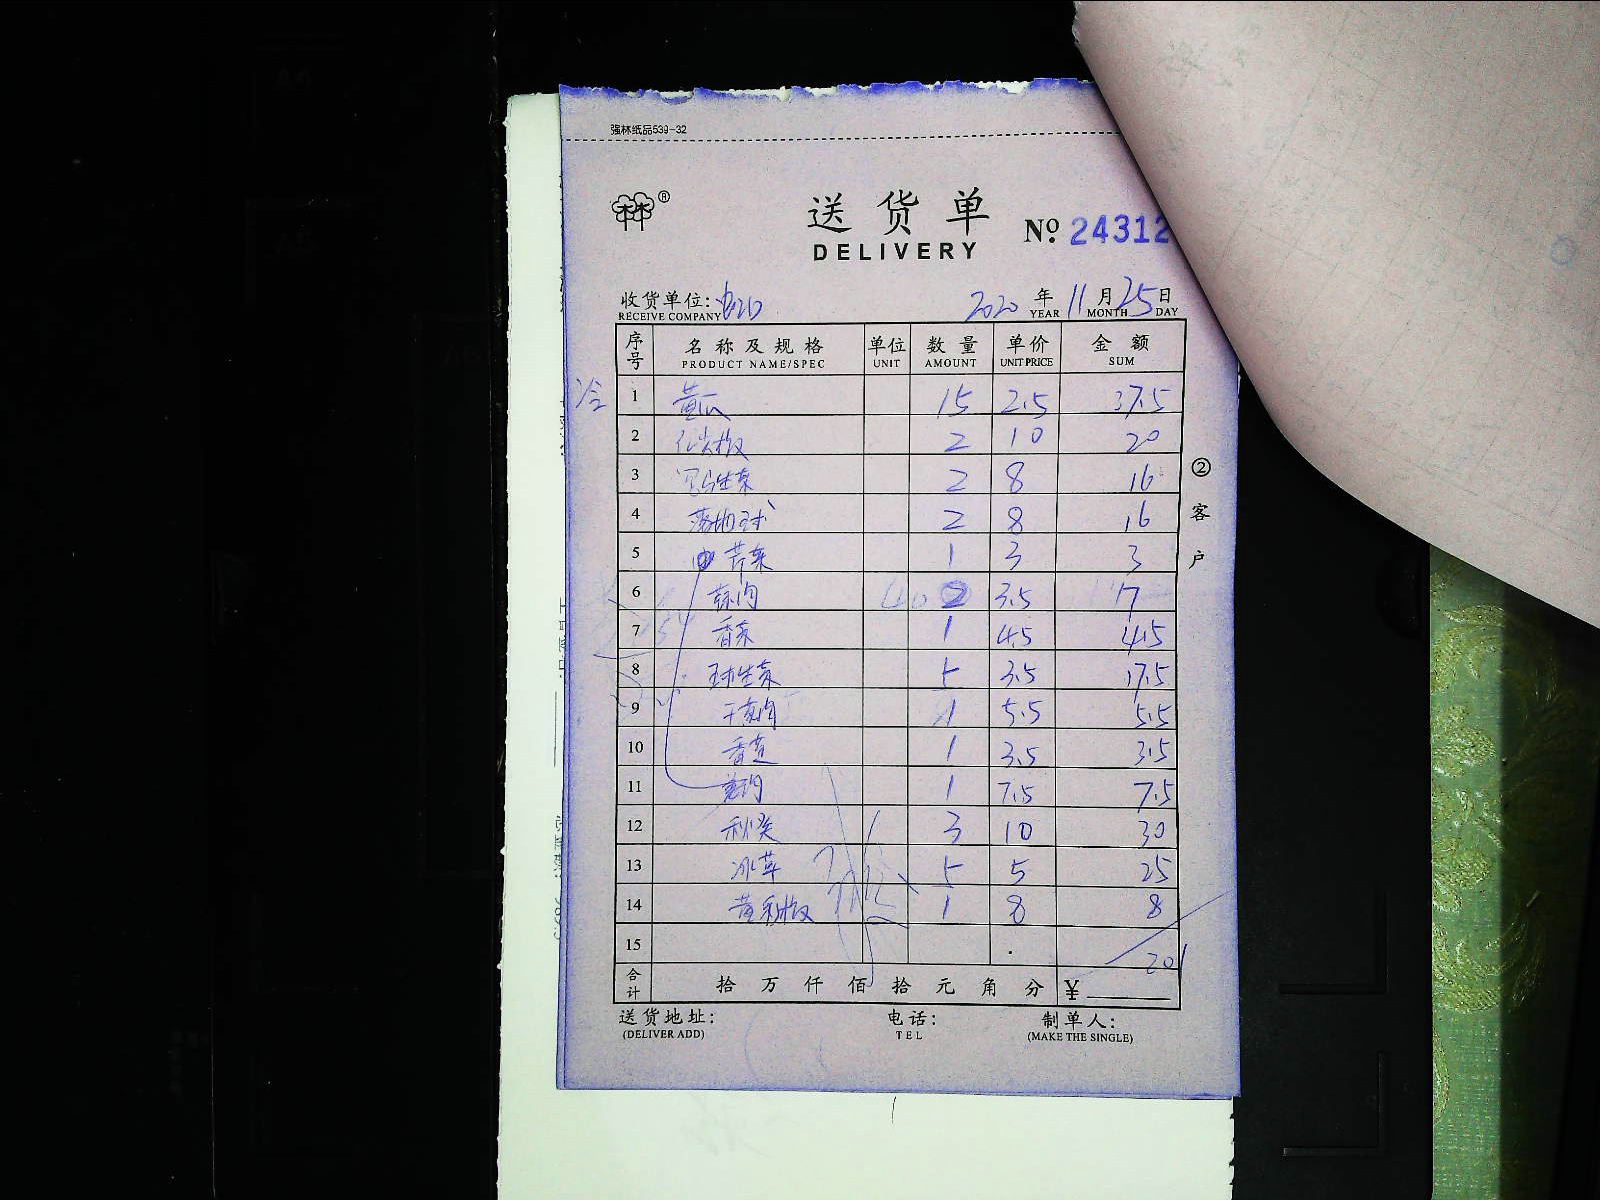 强林纸品539-32
林®
送货单
DELIVERY
№ 24312
收货单位:
RECEIVE COMPANY
2020 年 11 月 25 日
YEAR MONTH DAY
序号 名称及规格 单位 数量 单价 金额
PRODUCT NAME/SPEC UNIT AMOUNT UNIT PRICE SUM
冷 1 黄瓜 15 2.5 37.5
2 2 10 20
3 生菜 2 8 16
4 2 8 16
5 芹菜 1 3 3
6 2 3.5 7
7 香菜 1 4.5 4.5
8 球生菜 5 3.5 17.5
9 1 5.5 5.5
10 1 3.5 3.5
11 1 7.5 7.5
12 秋葵 3 10 30
13 冰草 5 5 25
14 黄彩椒 1 8 8
15 201
合计 拾 万 仟 佰 拾 元 角 分 ¥
②客户
送货地址: 电话: 制单人:
(DELIVER ADD) TEL (MAKE THE SINGLE)